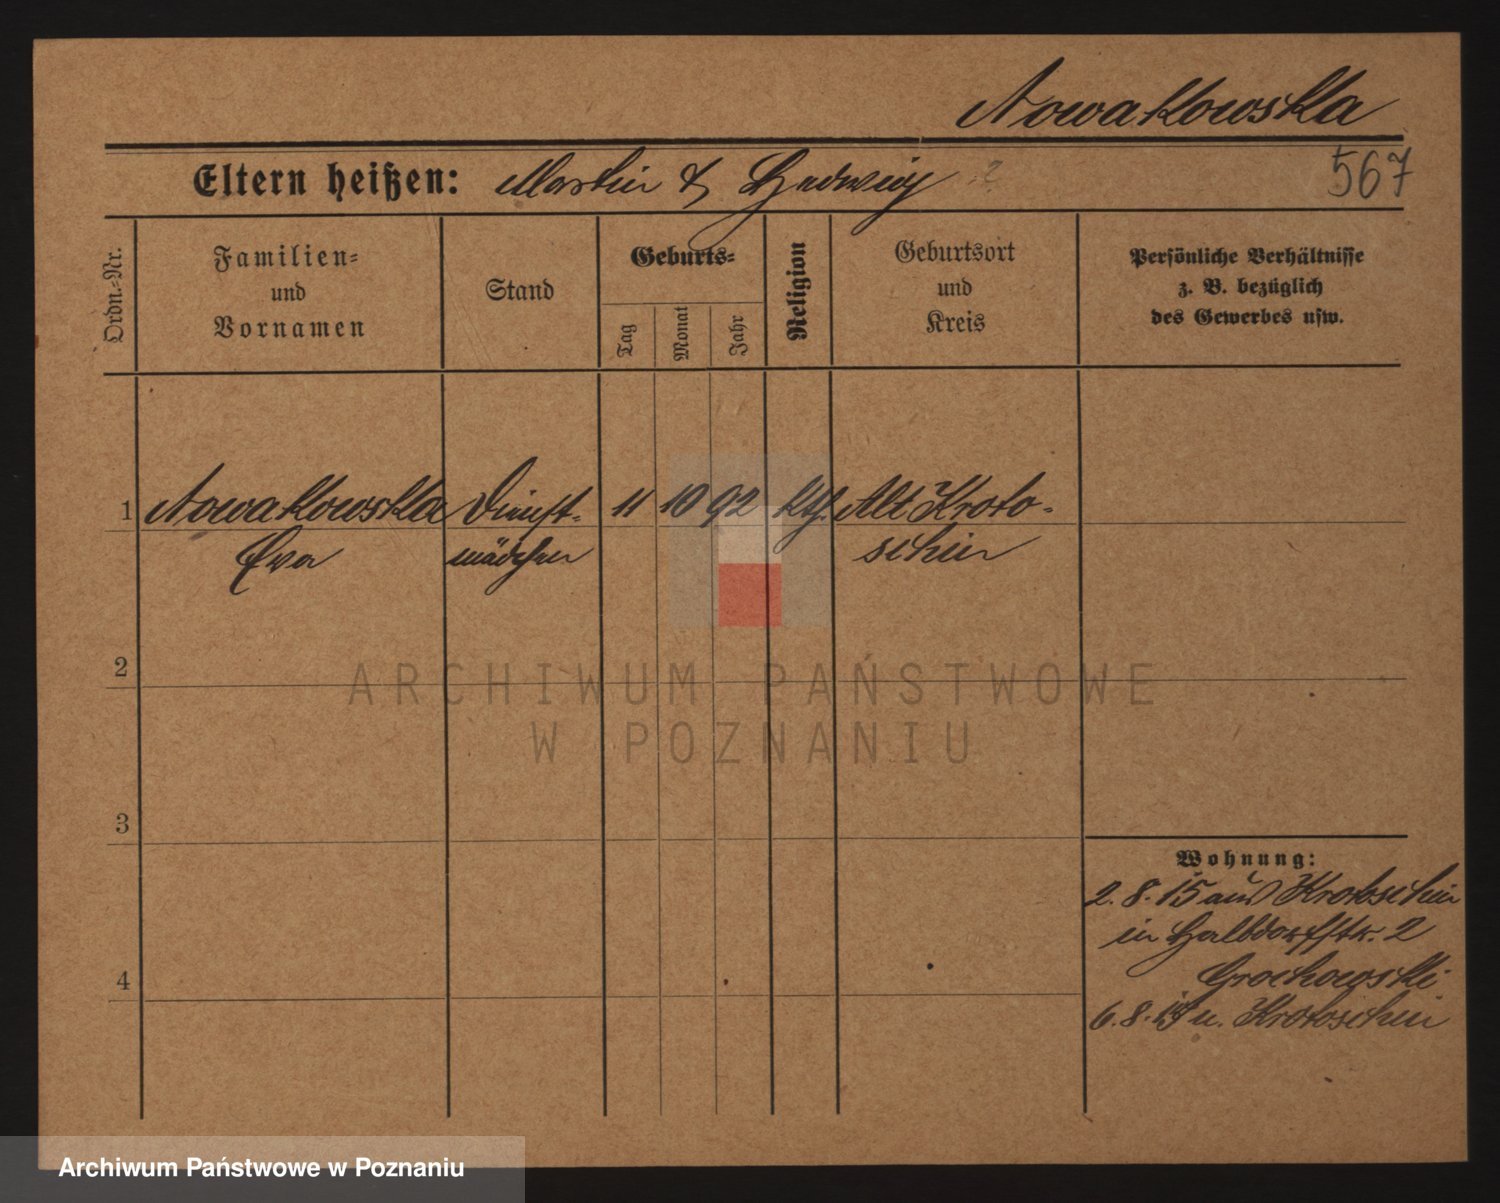 Nowakowska
Eltern heißen: Martin & Hedwig ?
567
Ordn.-Nr.
Familien-
und
Vornamen
Stand
Geburts-
Tag
Monat
Jahr
Religion
Geburtsort
und
Kreis
Persönliche Verhältnisse
z. B. bezüglich
des Gewerbes usw.
1 Nowakowska Dienst- 11 10 92 kth. Alt Kroto-
Eva mädchen schin
2
3
4
Wohnung:
2.8.15 aus Krotoschin
in Halbdorfstr. 2
Grochowski
6.8.15 n. Krotoschin
ARCHIWUM PAŃSTWOWE
W POZNANIU
Archiwum Państwowe w Poznaniu